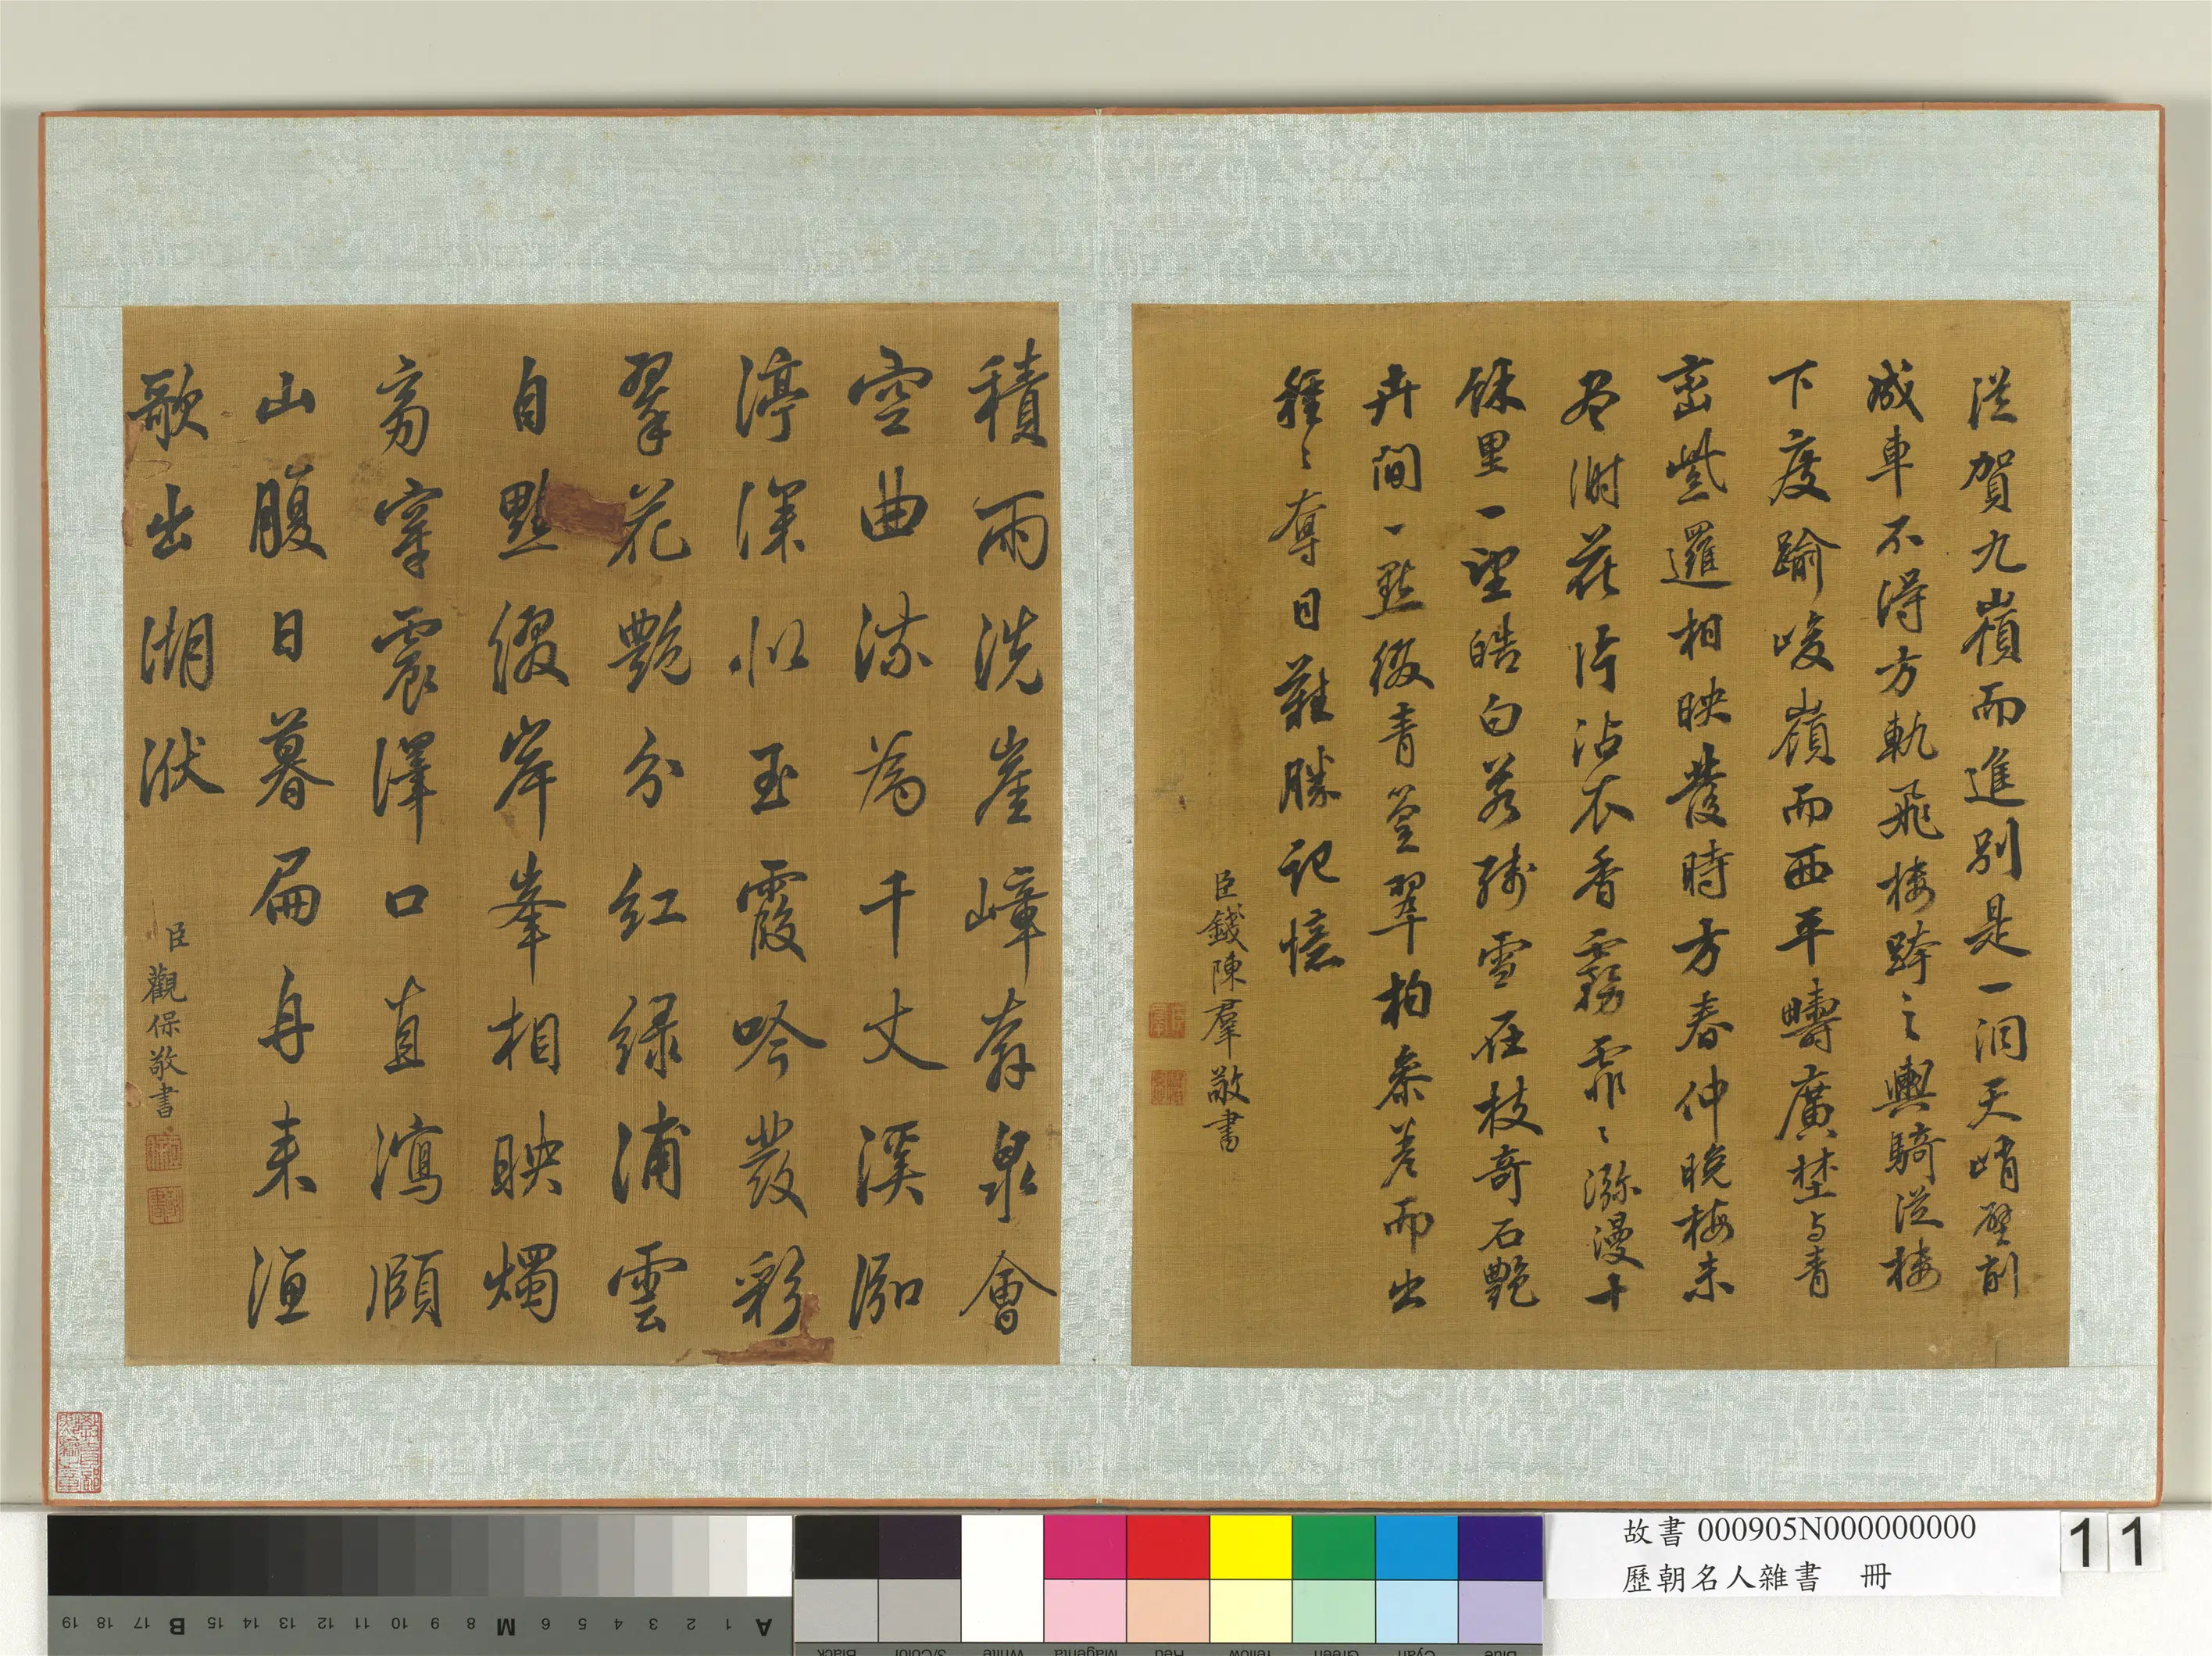 從賀九嶺而進別是一洞天峭壁削
成車不得方軌飛棧跨之輿騎從棧
下度踰峻嶺而西平疇廣埜与青
巒紫邏相映發時方春仲晚梅未
尽澗花片沾衣香霧霏〻瀰漫十
餘里一望皓白若殘雪在枝奇石艷
卉間一點綴青篁翠柏參差而出
種〻奪目難勝記憶
臣錢陳羣敬書
積雨洗崖嶂奔泉會
空曲流為千丈溪泓
渟深似玉霞吟發彩
翠花艷分紅綠浦雲
自點綴岸峯相映燭
旁穿震澤口直瀉頋
山腹日暮扁舟来漁
歌出湖洑
臣觀保敬書
故書 000905N000000000
歷朝名人雜書 冊
11
A 1 2 3 4 5 6 M 8 9 10 11 12 13 14 15 B 17 18 19
Blue Cyan Green Yellow Red Magenta White 3/Color Black